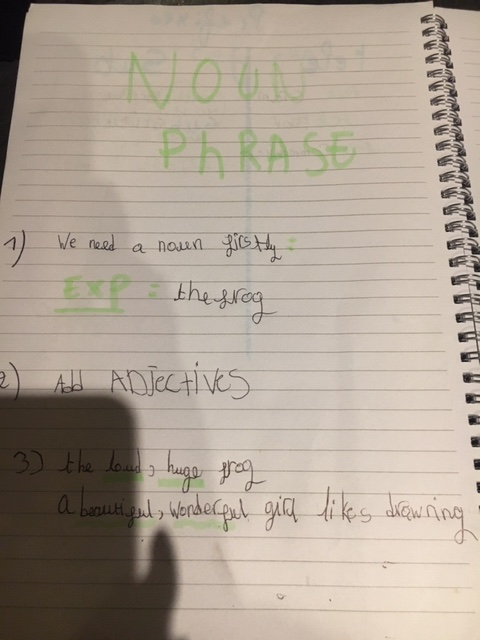 NOUN
PhRASE
1) We need a nouen firstly :
EXP = the frog
2) Add ADJECTIVES
3) the loud, huge frog
a beautiful, wonderful girl likes drawring